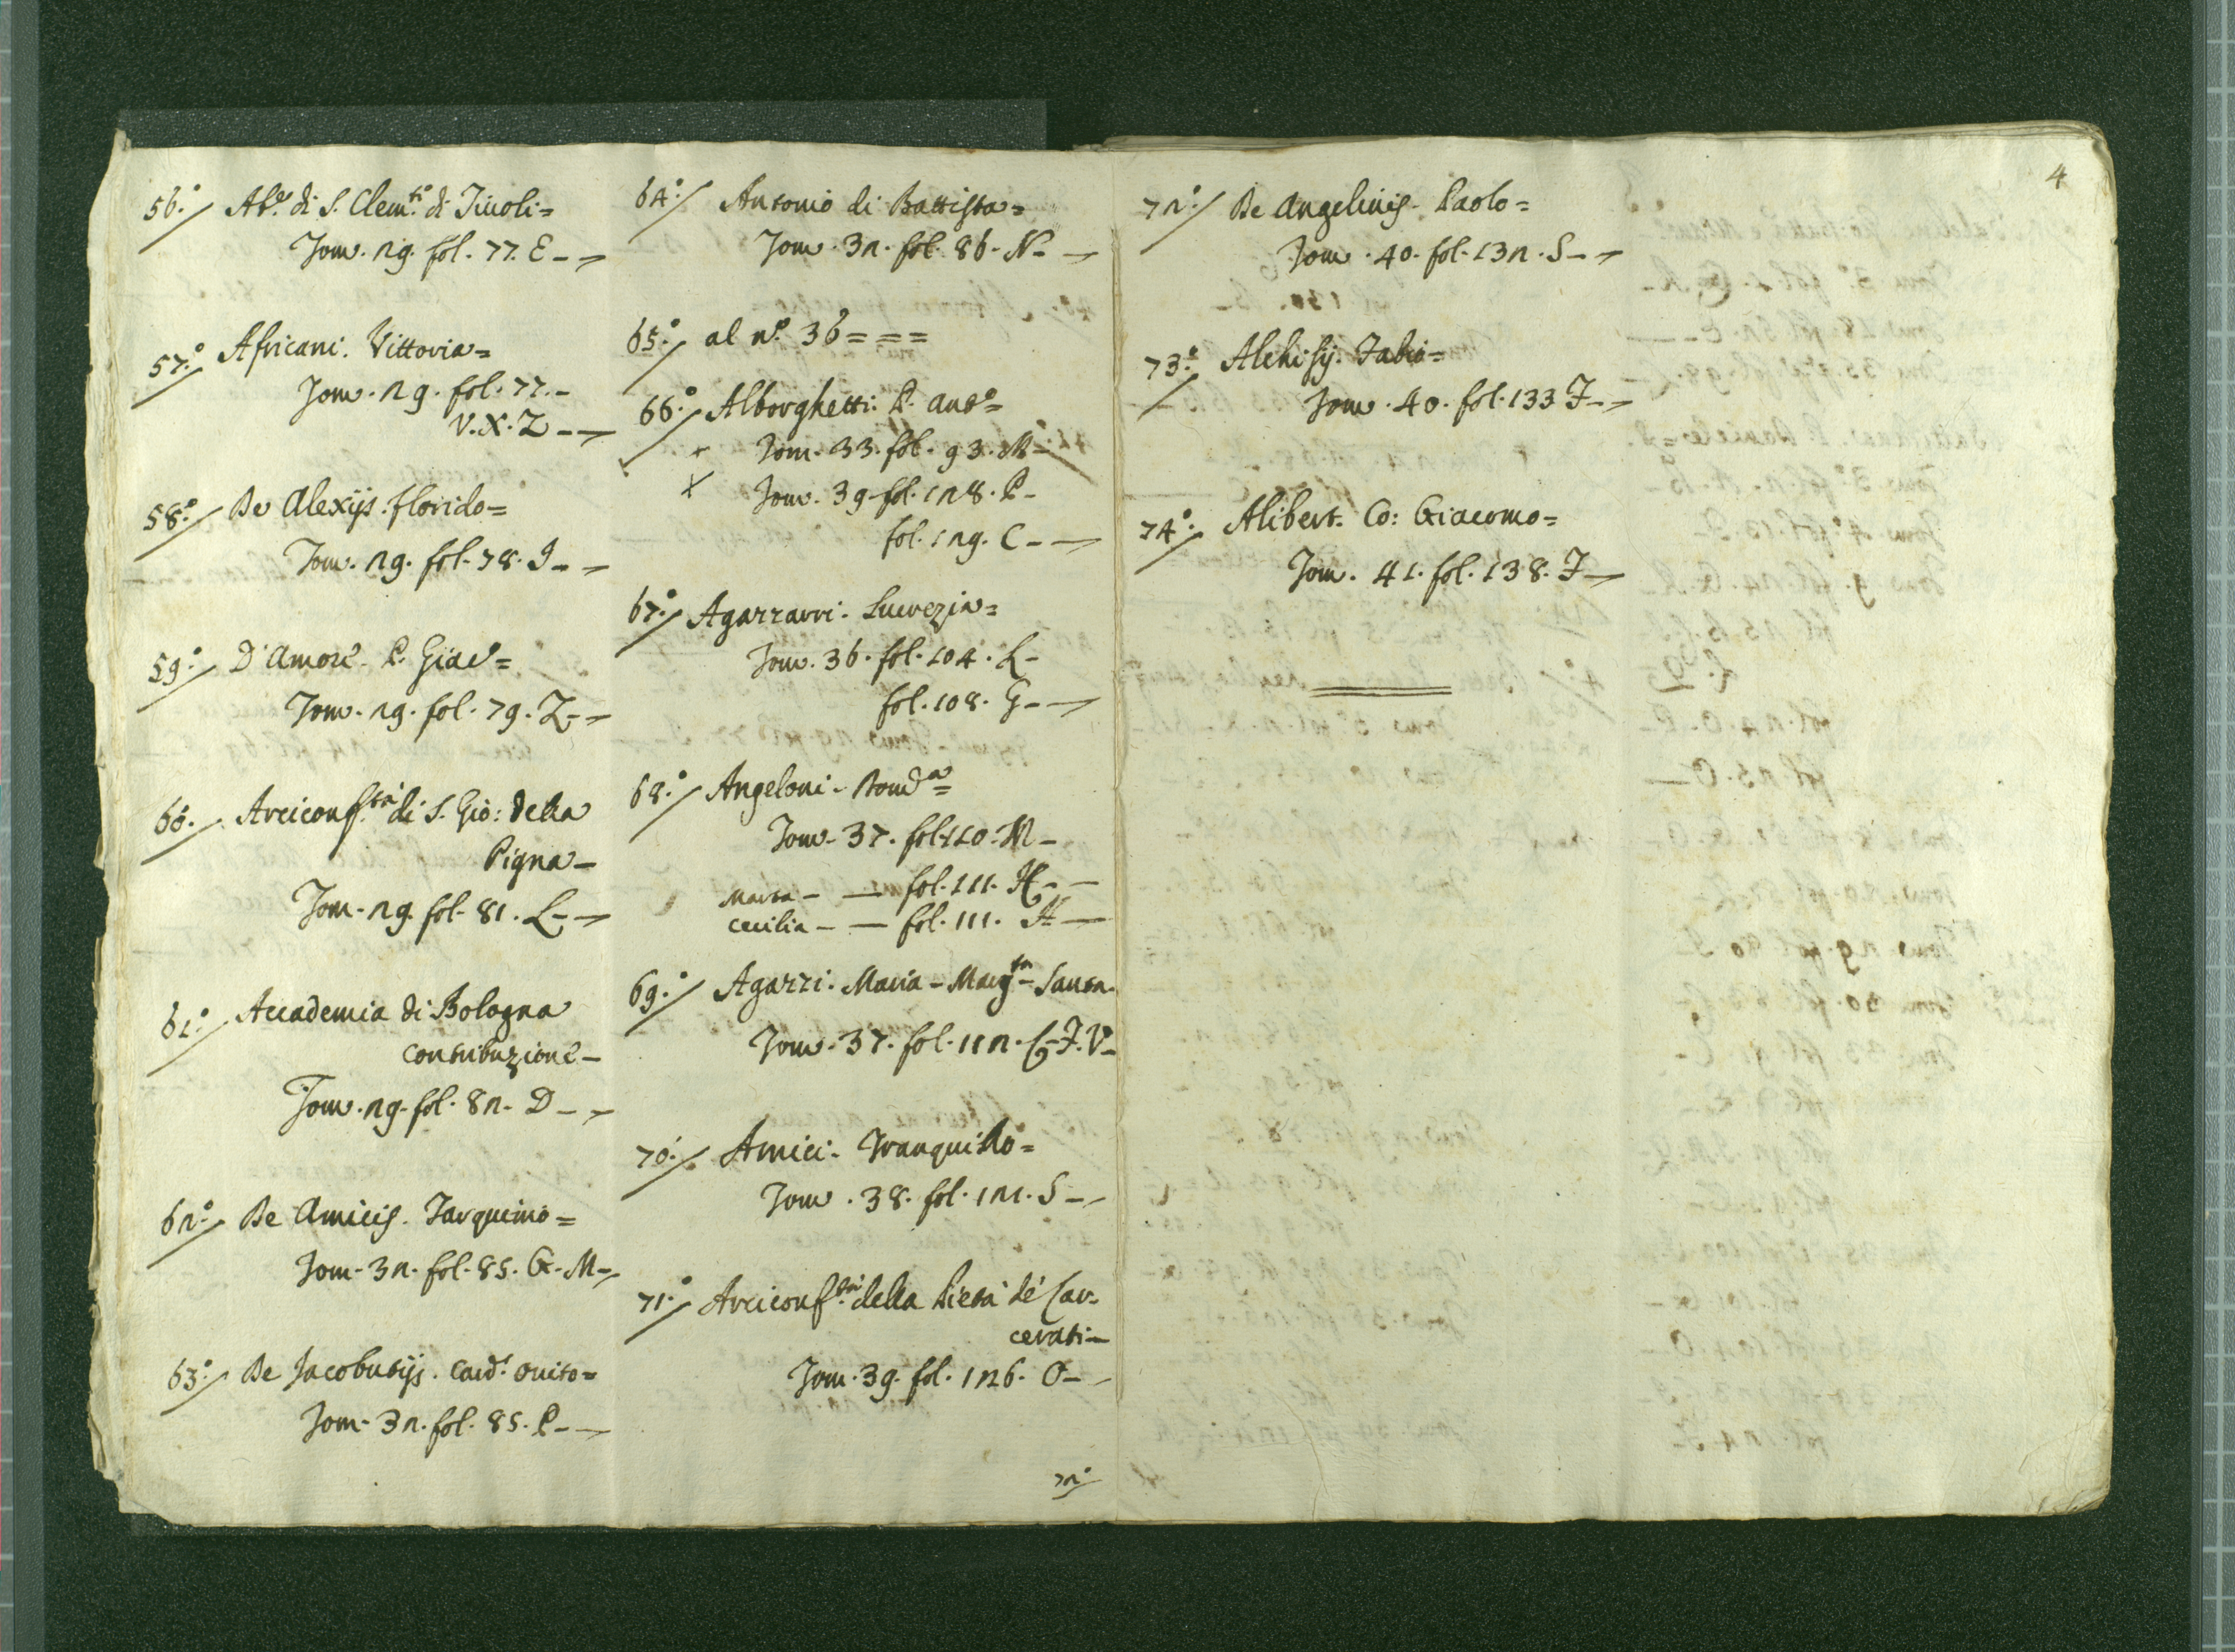 56.º Ab.e di S. Clem.te di Tiuoli=
Tom. 29. fol. 77. E - -
57.º Africani. Vittoria=
Tom. 29. fol. 77. -
V. X. Z - -
58.º De Alexijs. florido=
Tom. 29. fol. 78. I - -
59.º D'Amore. P. Giac.º=
Tom. 29. fol. 79. Z - -
60.º Arciconf.tà di S. Gio: della
Pigna -
Tom. 29. fol. 81. L - -
61.º Accademia di Bologna
contribuzione -
Tom. 29. fol. 82. D - -
62.º De Amicis. Tarquinio=
Tom. 32. fol. 85. G. M -
63.º De Jacobutijs. Card.l
Tom. 32. fol. 85. P - -
64.º Antonio di Battista=
Tom. 32. fol. 86. N - -
65.º al n.º 36 = = =
66.º Alborghetti. P. Ant.º=
+ Tom. 33. fol. 93. M -
X Tom. 39. fol. 128. P -
fol. 129. C - -
67.º Agazzarri. Lucrezia=
Tom. 36. fol. 104. L -
fol. 108. G - -
68.º Angeloni.
Tom. 37. fol. 110. M -
Marta - - fol. 111. H - -
Cecilia - - fol. 111. H -
69.º Agazzi. Maria - Marg.ta - Santa.
Tom. 37. fol. 112. G. I. V -
70.º Amici. Tranquillo=
Tom. 38. fol. 121. S - -
71.º Arciconf.tà della Pietà de' Car-
cerati -
Tom. 39. fol. 126. O - -
72.º
4
72.º De Angelinis. Paolo=
Tom. 40. fol. 132. S - -
73.º Alehisij. Fabio=
Tom. 40. fol. 133 I - -
74.º Alibert. Co: Giacomo=
Tom. 41. fol. 138. I -